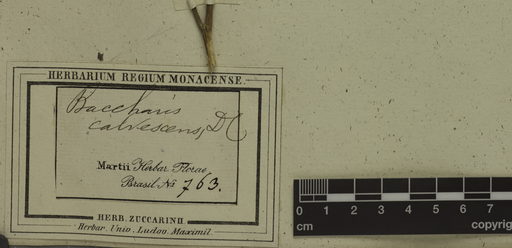 HERBARIUM REGIUM MONACENSE.
Baccharis
calvescens, DC
Martii Herbar. Florae
Brasil. No 763.
HERB. ZUCCARINII
Herbar. Univ. Ludov. Maximil.
0 1 2 3 4 5 6 7
cm copyrig